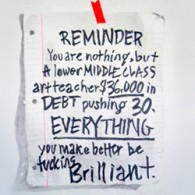 REMINDER
You are nothing, but
A lower MIDDLE CLASS
art teacher $36,000 in
DEBT pushing 30.
EVERYTHING
you make better be
fucking Brilliant.